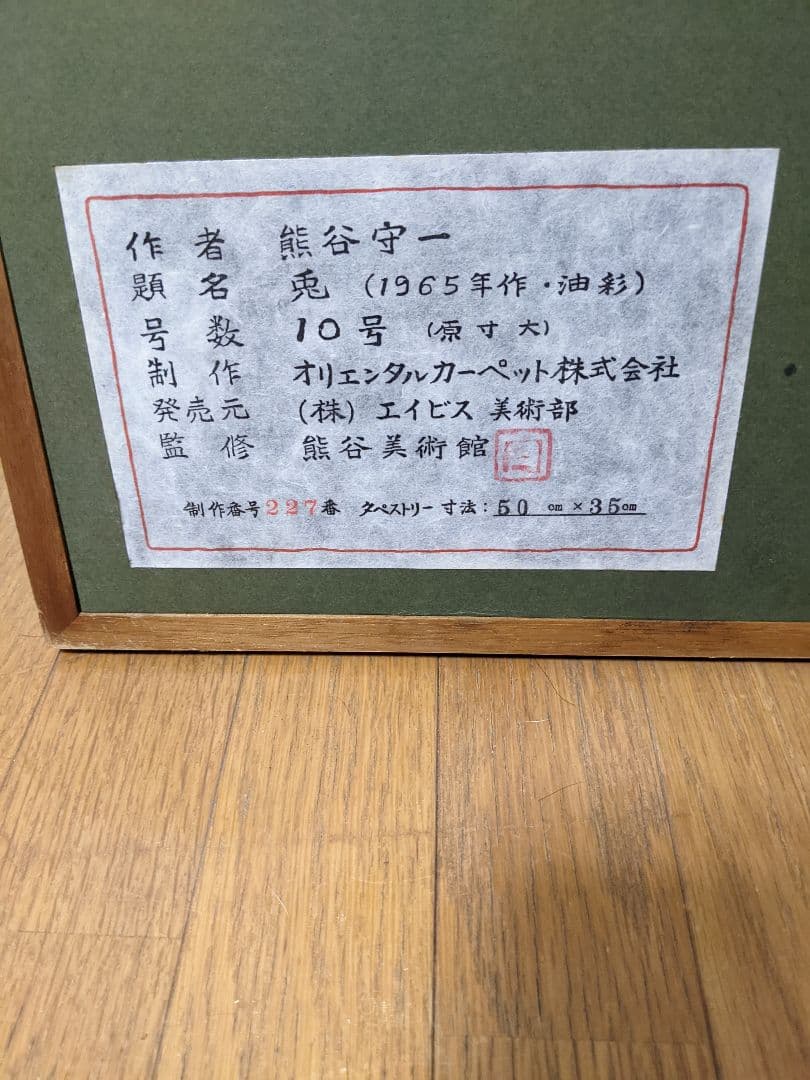 作者 熊谷守一
題名 兎 (1965年作・油彩)
号数 10号 (原寸大)
制作 オリエンタルカーペット株式会社
発売元 (株) エイビス 美術部
監修 熊谷美術館
制作番号227番 タペストリー寸法:50cm×35cm